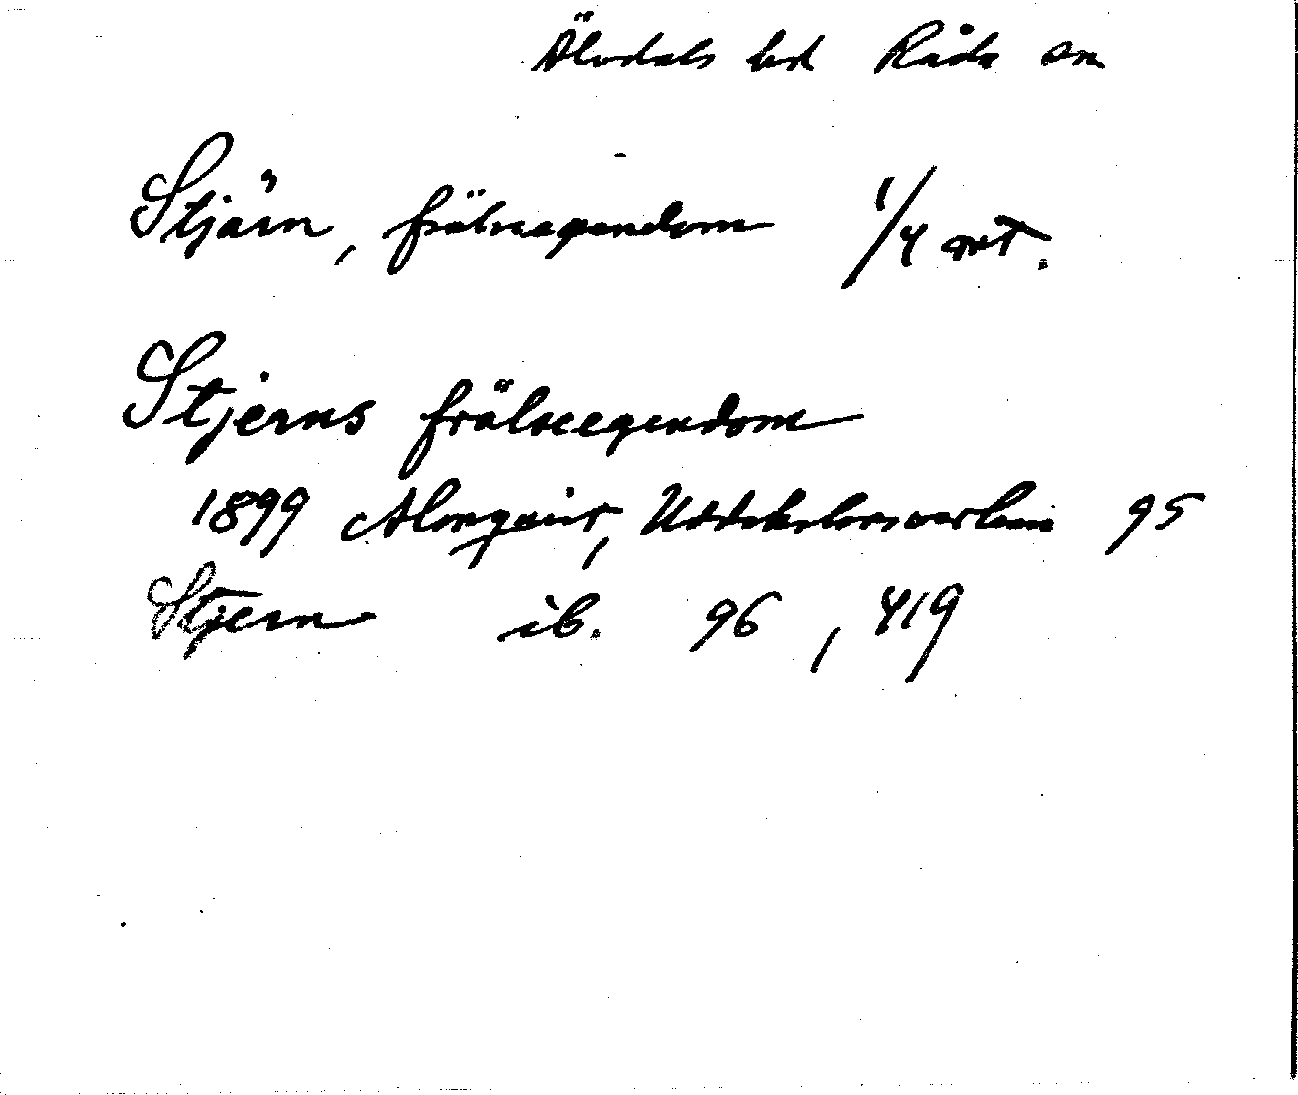 Älvdals hd Råda sn
Stjärn, frälseegendom 1/4 mt.
Stjerns frälseegendom
1899 Almquist, Uddeholmsverken 95
Stjern ib. 96, 419